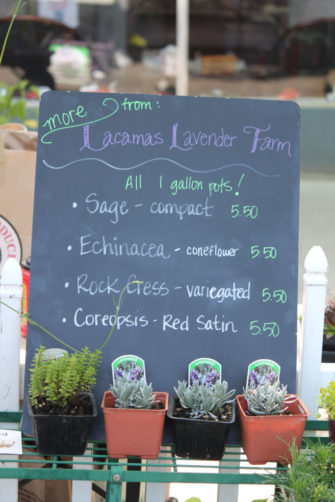 more from:
Lacamas Lavender Farm
All 1 gallon pots!
• Sage - compact 5.50
• Echinacea - coneflower 5.50
• Rock Cress - variegated 5.50
• Coreopsis - Red Satin 5.50